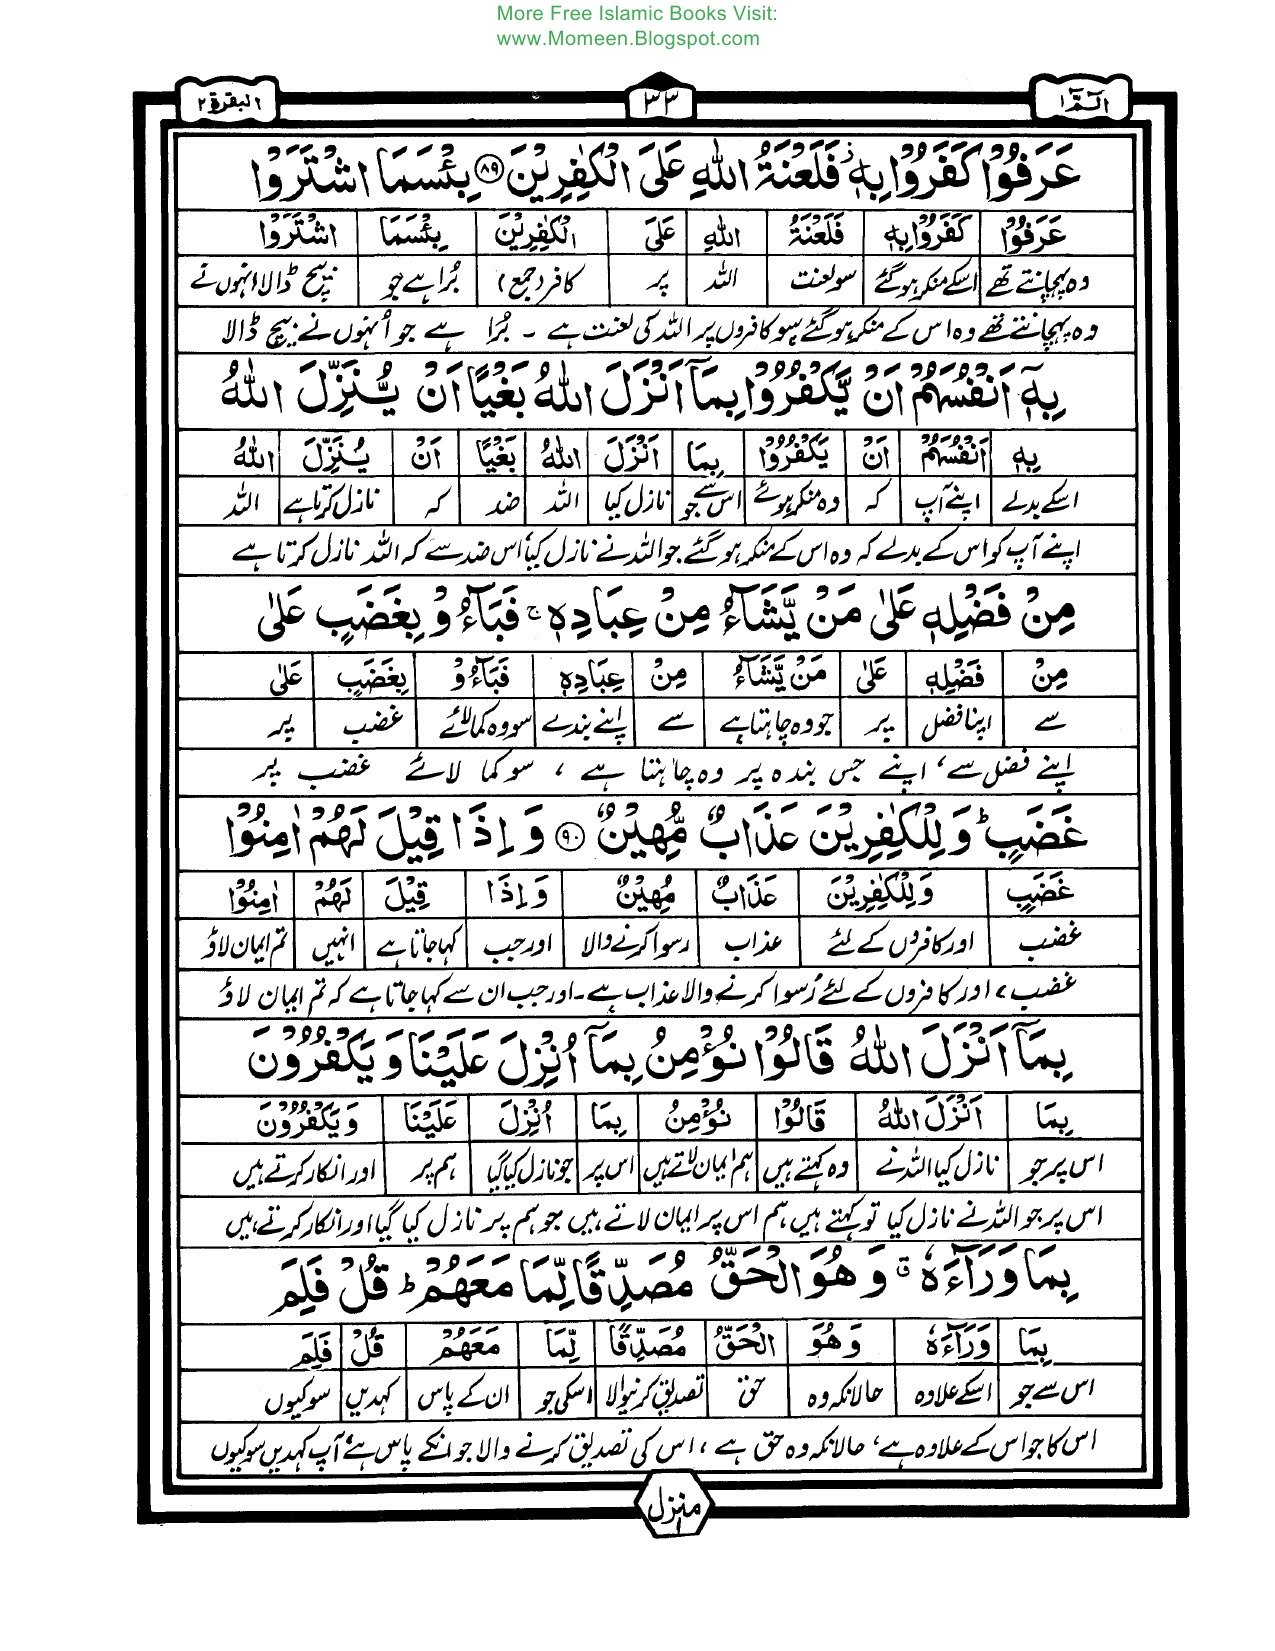 More Free Islamic Books Visit:
www.Momeen.Blogspot.com
الٓمّٓ ١ ٣٣ البقرة ٢
عَرَفُوْا كَفَرُوْا بِهٖ ز فَلَعْنَةُ اللّٰهِ عَلَى الْكٰفِرِيْنَ ﴿٨٩﴾ بِئْسَمَا اشْتَرَوْا
عَرَفُوْا كَفَرُوْا بِهٖ فَلَعْنَةُ اللّٰهِ عَلَى الْكٰفِرِيْنَ بِئْسَمَا اشْتَرَوْا
وہ پہچانتے تھے اسکے منکر ہوگئے سو لعنت اللہ پر کافر (جمع) بُرا ہے جو بیچ ڈالا انہوں نے
وہ پہچانتے تھے وہ اس کے منکر ہوگئے سو کافروں پر اللہ کی لعنت ہے ۔ بُرا ہے جو اُنہوں نے بیچ ڈالا
بِهٖٓ اَنْفُسَهُمْ اَنْ يَّكْفُرُوْا بِمَآ اَنْزَلَ اللّٰهُ بَغْيًا اَنْ يُّنَزِّلَ اللّٰهُ
بِهٖ اَنْفُسَهُمْ اَنْ يَكْفُرُوْا بِمَا اَنْزَلَ اللّٰهُ بَغْيًا اَنْ يُنَزِّلَ اللّٰهُ
اسکے بدلے اپنے آپ کہ وہ منکر ہوئے اس سے جو نازل کیا اللہ ضد کہ نازل کرتا ہے اللہ
اپنے آپ کو اس کے بدلے کہ وہ اس کے منکر ہوگئے جو اللہ نے نازل کیا، اس ضد سے کہ اللہ نازل کرتا ہے
مِنْ فَضْلِهٖ عَلٰى مَنْ يَّشَآءُ مِنْ عِبَادِهٖ ج فَبَآءُوْ بِغَضَبٍ عَلٰى
مِنْ فَضْلِهٖ عَلٰى مَنْ يَّشَآءُ مِنْ عِبَادِهٖ فَبَآءُوْ بِغَضَبٍ عَلٰى
سے اپنا فضل پر جو وہ چاہتا ہے سے اپنے بندے سو وہ کما لائے غضب پر
اپنے فضل سے، اپنے جس بندہ پر وہ چاہتا ہے ، سو کما لائے غضب پر
غَضَبٍ ط وَلِلْكٰفِرِيْنَ عَذَابٌ مُّهِيْنٌ ﴿٩٠﴾ وَاِذَا قِيْلَ لَهُمْ اٰمِنُوْا
غَضَبٍ وَلِلْكٰفِرِيْنَ عَذَابٌ مُهِيْنٌ وَاِذَا قِيْلَ لَهُمْ اٰمِنُوْا
غضب اور کافروں کے لئے عذاب رسوا کرنے والا اور جب کہا جاتا ہے انہیں تم ایمان لاؤ
غضب، اور کافروں کے لئے رُسوا کرنے والا عذاب ہے۔ اور جب ان سے کہا جاتا ہے کہ تم ایمان لاؤ
بِمَآ اَنْزَلَ اللّٰهُ قَالُوْا نُؤْمِنُ بِمَآ اُنْزِلَ عَلَيْنَا وَيَكْفُرُوْنَ
بِمَا اَنْزَلَ اللّٰهُ قَالُوْا نُؤْمِنُ بِمَا اُنْزِلَ عَلَيْنَا وَيَكْفُرُوْنَ
اس پر جو نازل کیا اللہ نے وہ کہتے ہیں ہم ایمان لاتے ہیں اس پر جو نازل کیا گیا ہم پر اور انکار کرتے ہیں
اس پر جو اللہ نے نازل کیا تو کہتے ہیں ہم اس پر ایمان لاتے ہیں جو ہم پر نازل کیا گیا اور انکار کرتے ہیں
بِمَا وَرَآءَهٗ ق وَهُوَ الْحَقُّ مُصَدِّقًا لِّمَا مَعَهُمْ ط قُلْ فَلِمَ
بِمَا وَرَآءَهٗ وَهُوَ الْحَقُّ مُصَدِّقًا لِّمَا مَعَهُمْ قُلْ فَلِمَ
اس سے جو اسکے علاوہ حالانکہ وہ حق تصدیق کرنیوالا اسکی جو ان کے پاس کہدیں سو کیوں
اس کا جو اس کے علاوہ ہے، حالانکہ وہ حق ہے ، اس کی تصدیق کرنے والا جو انکے پاس ہے، آپ کہدیں سو کیوں
منزل ١